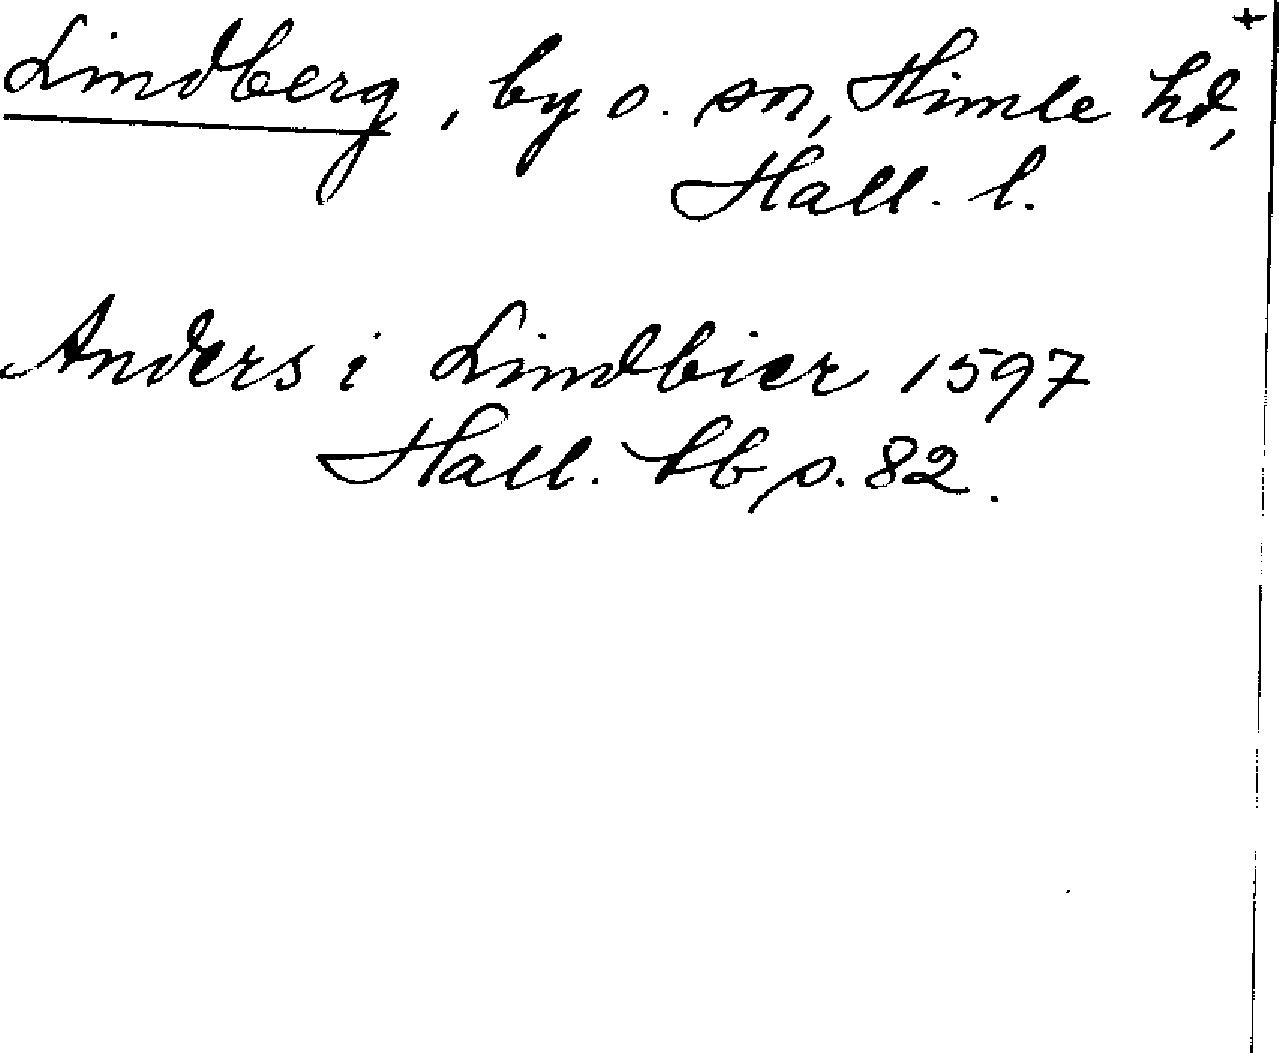 +
Lindberg, by o. sn, Himle hd,
Hall. l.
Anders i Lindbier 1597
Hall. lb s. 82.